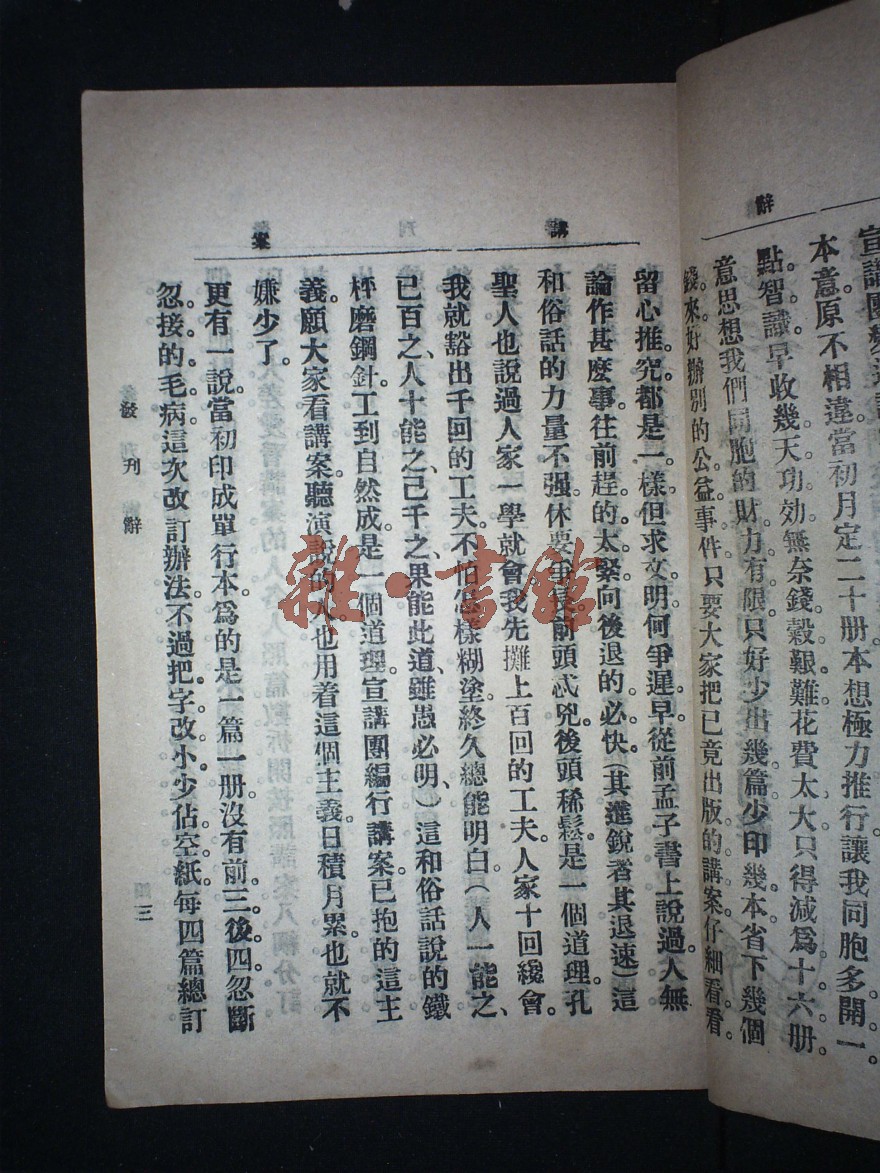 辭
宣講團
本意原不相違。當初月定二十册。本想極力推行。讓我同胞多開一
點智識。早收幾天功効。無奈錢穀艱難。花費太大。只得減爲十六册。
意思想我們同胞的財力有限。只好少出幾篇。少印幾本。省下幾個
錢來。好辦別的公益事件。只要大家把已竟出版的講案仔細看看。
講 案
留心推究。都是一樣。但求文明。何爭遲早。從前孟子書上說過。人無
論作甚麽事。往前趕的太緊。向後退的必快。(其進銳者其退速)這
和俗話的力量不强。休要爭長。前頭忒兇。後頭稀鬆。是一個道理。孔
聖人也說過。人家一學就會。我先攤上百回的工夫。人家十回纔會。
我就豁出千回的工夫。不怕怎樣糊塗。終久總能明白。(人一能之、
己百之、人十能之、己千之、果能此道、雖愚必明、)這和俗話說的鐵
杵磨鋼針。工到自然成。是一個道理。宣講團編行講案。已抱的這主
義。願大家看講案聽演說的人。也用着這個主義。日積月累。也就不
嫌少了。
更有一說。當初印成單行本。爲的是一篇一册。沒有前三後四。忽斷
忽接的毛病。這次改訂辦法。不過把字改小。少佔空紙。每四篇總訂
發刊辭
三
雜·書館